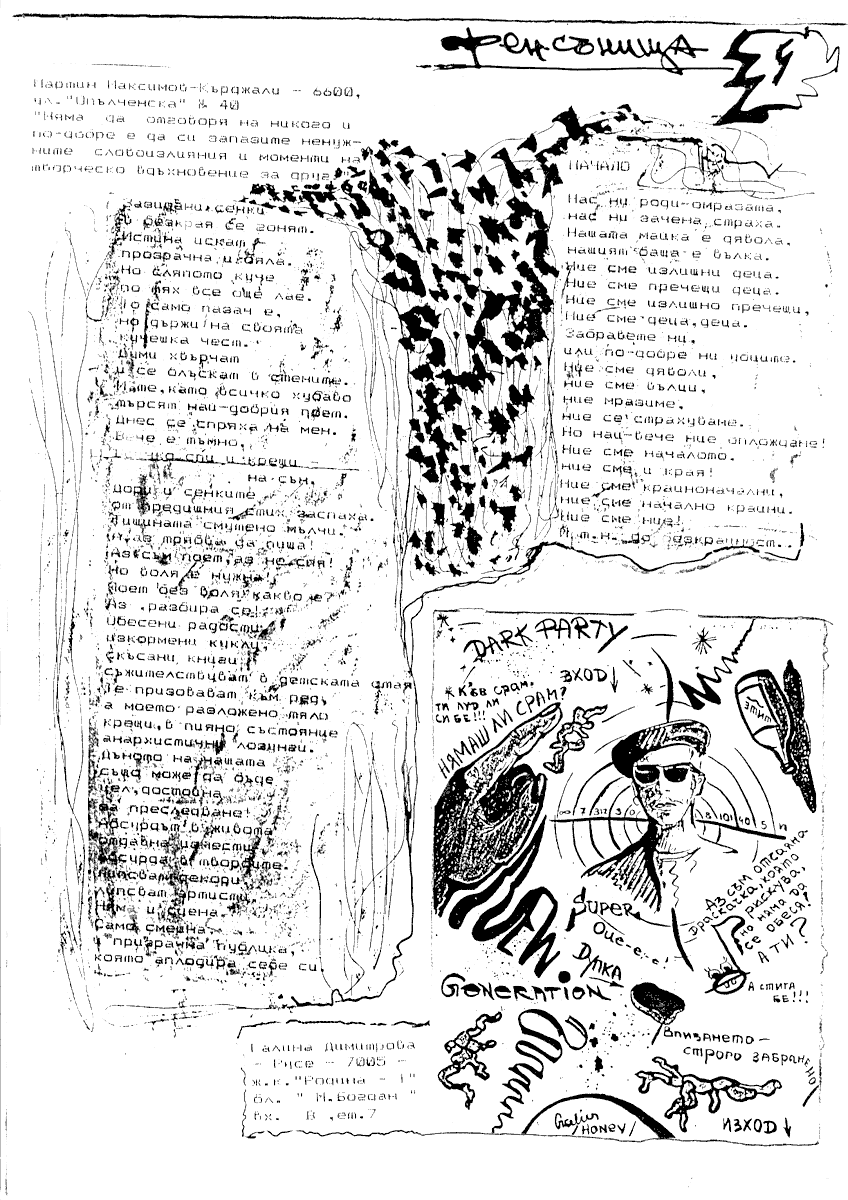 фен-съница
Мартин Максимов-Кърджали - 6600,
ул."Опълченска" № 40
"Няма да отговоря на никого и
по-добре е да си запазите ненуж-
ните словоизлияния и моменти на
творческо вдъхновение за друг."
Зазидани сенки
в безкрая се гонят.
Истина искат
прозрачна и бяла.
Но сляпото куче
по тях все още лае.
То само пазач е,
но държи на своята
кучешка чест.
Думи хвърчат
и се блъскат в стените.
И те, като всичко хубаво
търсят най-добрия поет.
Днес се спряха на мен.
Вече е тъмно,
спи и крещи
на сън.
Дори и сенките
от предишния стих заспаха.
Тишината смутено мълчи.
А, аз трябва да пиша!
Аз съм поет, аз не спя!
Но воля е нужна!
Поет без воля какво е?
Аз ,разбира се!
Обесени радости,
изкормени кукли,
скъсани книги
съжителствуват в детската стая
Те призовават към ред,
а моето разложено тяло
крещи, в пияно състояние
анархистични лозунги.
Дъното на нашата
също може да бъде
цел, достойна
за преследване!
Абсурдът в живота
отдавна измести
абсурда в творбите.
Липсват декори,
липсват артисти,
Няма и сцена.
Само смешна,
и призрачна публика,
която аплодира себе си.
НАЧАЛО
Нас ни роди-омразата,
нас ни зачена страха.
Нашата майка е дявола,
нашият баща е вълка.
Ние сме излишни деца.
Ние сме пречещи деца.
Ние сме излишно пречещи,
Ние сме деца, деца.
Забравете ни,
или по-добре ни убийте.
Ние сме дяволи,
ние сме вълци,
ние мразиме,
ние се страхуваме.
Но най-вече ние оплождаме!
Ние сме началото.
ние сме и края!
Ние сме крайноначални,
ние сме начално крайни.
Ние сме ние!
И т.н. до безкрайност..
Галина Димитрова
- Русе - 7005 -
ж.к."Родина - 1"
бл. " М.Богдан "
вх. В ,ет.7
DARK PARTY
ВХОD ↓
* КЪВ СРАМ,
ТИ ЛУД ЛИ
СИ БЕ!!!
НЯМАШ ЛИ СРАМ?
ЭТИЛ
∞ 7 317 3 0
8 101 40 5 n
Аз съм отсаяна
драскачка, която
рискува,
но няма да
се обеся!
А ТИ?
SUPER
Оие-е-е!
DУПКА
NEW.
GENERATION
А СТИГА
БЕ!!!
Влизането -
строго забранено!
Galin
/HONEY/
ИЗХОD ↓